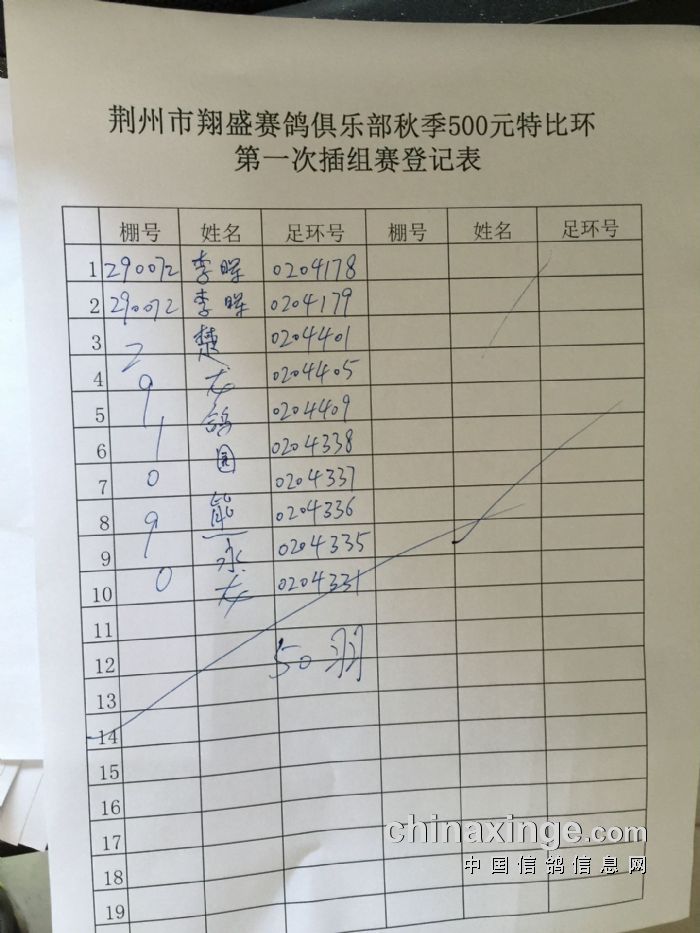 荆州市翔盛赛鸽俱乐部秋季500元特比环
第一次插组赛登记表
棚号 姓名 足环号 棚号 姓名 足环号
1 290072 李晖 0204178
2 290072 李晖 0204179
3 2 楚 0204401
4 9 龙 0204405
5 1 鸽 0204409
6 0 园 0204338
7 9 熊 0204337
8 0 永 0204336
9 龙 0204335
10 0204331
11
12 50羽
13
14
15
16
17
18
19
chinaxinge.com
中国信鸽信息网